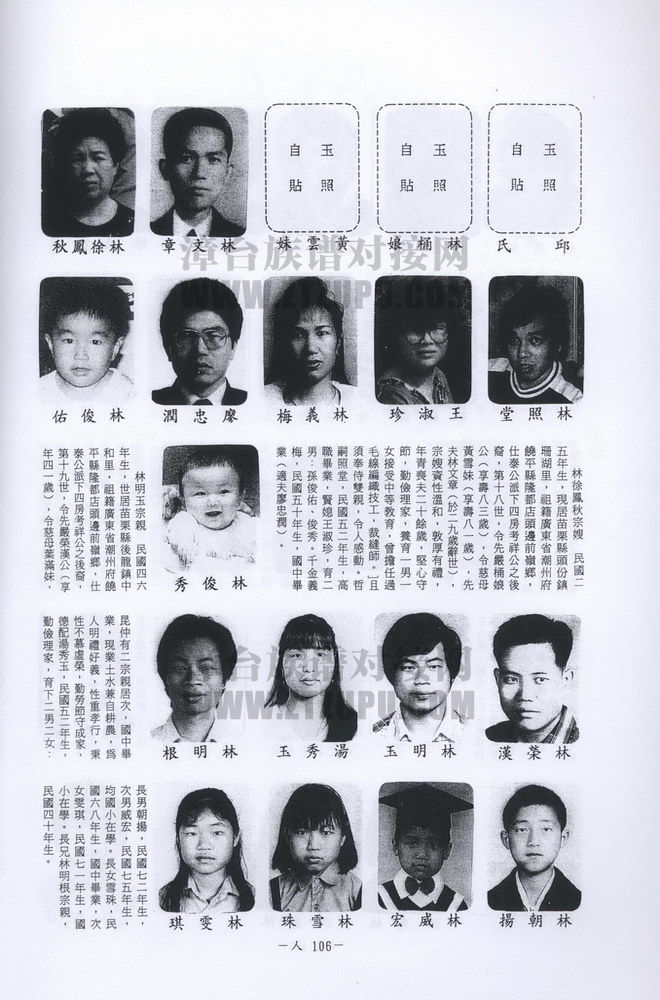 邱氏
自貼玉照
林桶娘
自貼玉照
黃雲妹
自貼玉照
林文章
林徐鳳秋
漳台族谱对接网
WWW.ZTZUPU.COM
林照堂
王淑珍
林義梅
廖忠潤
林俊佑
林徐鳳秋宗嫂 民國二
五年生，現居苗栗縣頭份鎮
珊湖里，祖籍廣東省潮州府
饒平縣隆都店頭邊前嶺鄉，
仕泰公派下四房考祥公之後
裔，第十八世，令先嚴桶娘
公（享壽八三歲），令慈母
黃雪妹（享壽八一歲），先
夫林文章（於二九歲辭世），
宗嫂資性溫和，敦厚有禮，
年青喪夫二十餘歲，堅心守
節，勤儉理家，養育一男一
女接受中等教育，曾擔任過
毛線編織技工，裁縫師。且
須奉侍雙親，令人感動。哲
嗣照堂，民國五二年生，高
職畢業，賢媳王淑珍，育二
男：孫俊佑，俊秀。千金義
梅，民國五十年生，國中畢
業（適夫廖忠潤）。
林俊秀
林明玉宗親 民國四六
年生，世居苗栗縣後龍鎮中
和里，祖籍廣東省潮州府饒
平縣隆都店頭邊前嶺鄉，仕
泰公派下四房考祥公之後裔，
第十九世，令先嚴榮漢公（享
年四一歲），令慈母葉滿妹，
林榮漢
林明玉
湯秀玉
林明根
昆仲有二宗親居次，國中畢
業，現業土水兼自耕農，為
人明禮好義，性重孝行，秉
性不慕虛榮，勤勞節守成家，
德配湯秀玉，民國五二年生，
勤儉理家，育下二男二女：
漳台族谱对接网
WWW.ZTZUPU.COM
林朝揚
林威宏
林雪珠
林雯琪
長男朝揚，民國七二年生，
次男威宏，民國七五年生，
均國小在學。長女雪珠，民
國六八年生，國中畢業，次
女雯琪，民國七一年生，國
小在學。長兄林明根宗親，
民國四十年生。
－人 106－